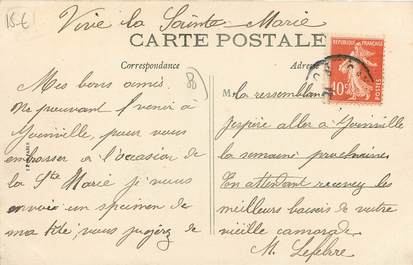 15-E
Vive la Sainte Marie
CARTE POSTALE
REPUBLIQUE FRANÇAISE
10c
POSTES
Correspondance
Adre
Mes bons amis
Ne pouvant venir à
Joinville, pour vous
embrasser à l'occasion de
la Ste Marie je vous
envoie un specimen de
ma tête, vous jugerez de
M
la ressemblan
J'espère aller à Joinville
la semaine prochaine
En attendant recevez les
meilleurs baisers de votre
vieille camarade
M. Lefebre